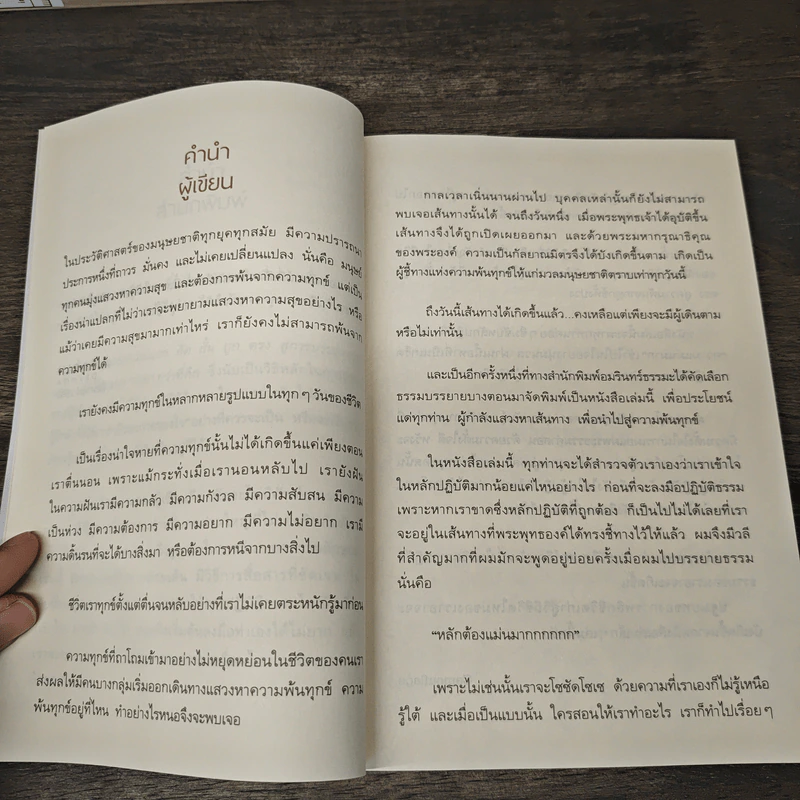 คำนำ
ผู้เขียน
ในประวัติศาสตร์ของมนุษยชาติทุกยุคทุกสมัย มีความปรารถนา
ประการหนึ่งที่ถาวร มั่นคง และไม่เคยเปลี่ยนแปลง นั่นคือ มนุษย์
ทุกคนมุ่งแสวงหาความสุข และต้องการพ้นจากความทุกข์ แต่เป็น
เรื่องน่าแปลกที่ไม่ว่าเราจะพยายามแสวงหาความสุขอย่างไร หรือ
แม้ว่าเคยมีความสุขมามากเท่าไหร่ เราก็ยังคงไม่สามารถพ้นจาก
ความทุกข์ได้
เรายังคงมีความทุกข์ในหลากหลายรูปแบบในทุกๆ วันของชีวิต
เป็นเรื่องน่าใจหายที่ความทุกข์นั้นไม่ได้เกิดขึ้นแค่เพียงตอน
เราตื่นนอน เพราะแม้กระทั่งเมื่อเรานอนหลับไป เรายังฝัน
ในความฝันเรามีความกลัว มีความกังวล มีความสับสน มีความ
เป็นห่วง มีความต้องการ มีความอยาก มีความไม่อยาก เรามี
ความดิ้นรนที่จะได้บางสิ่งมา หรือต้องการหนีจากบางสิ่งไป
ชีวิตเราทุกข์ตั้งแต่ตื่นจนหลับอย่างที่เราไม่เคยตระหนักรู้มาก่อน
ความทุกข์ที่ถาโถมเข้ามาอย่างไม่หยุดหย่อนในชีวิตของคนเรา
ส่งผลให้มีคนบางกลุ่มเริ่มออกเดินทางแสวงหาความพ้นทุกข์ ความ
พ้นทุกข์อยู่ที่ไหน ทำอย่างไรหนอจึงจะพบเจอ
กาลเวลาเนิ่นนานผ่านไป บุคคลเหล่านั้นก็ยังไม่สามารถ
พบเจอเส้นทางนั้นได้ จนถึงวันหนึ่ง เมื่อพระพุทธเจ้าได้อุบัติขึ้น
เส้นทางจึงได้ถูกเปิดเผยออกมา และด้วยพระมหากรุณาธิคุณ
ของพระองค์ ความเป็นกัลยาณมิตรจึงได้บังเกิดขึ้นตาม เกิดเป็น
ผู้ชี้ทางแห่งความพ้นทุกข์ให้แก่มวลมนุษยชาติตราบเท่าทุกวันนี้
ถึงวันนี้เส้นทางได้เกิดขึ้นแล้ว...คงเหลือแต่เพียงจะมีผู้เดินตาม
หรือไม่เท่านั้น
และเป็นอีกครั้งหนึ่งที่ทางสำนักพิมพ์อมรินทร์ธรรมะได้คัดเลือก
ธรรมบรรยายบางตอนมาจัดพิมพ์เป็นหนังสือเล่มนี้ เพื่อประโยชน์
แด่ทุกท่าน ผู้กำลังแสวงหาเส้นทาง เพื่อนำไปสู่ความพ้นทุกข์
ในหนังสือเล่มนี้ ทุกท่านจะได้สำรวจตัวเราเองว่าเราเข้าใจ
ในหลักปฏิบัติมากน้อยแค่ไหนอย่างไร ก่อนที่จะลงมือปฏิบัติธรรม
เพราะหากเราขาดซึ่งหลักปฏิบัติที่ถูกต้อง ก็เป็นไปไม่ได้เลยที่เรา
จะอยู่ในเส้นทางที่พระพุทธองค์ได้ทรงชี้ทางไว้ให้แล้ว ผมจึงมีวลี
ที่สำคัญมากที่ผมมักจะพูดอยู่บ่อยครั้งเมื่อผมไปบรรยายธรรม
นั่นคือ
“หลักต้องแม่นมากกกกกก”
เพราะไม่เช่นนั้นเราจะโซซัดโซเซ ด้วยความที่เราเองก็ไม่รู้เหนือ
รู้ใต้ และเมื่อเป็นแบบนั้น ใครสอนให้เราทำอะไร เราก็ทำไปเรื่อยๆ